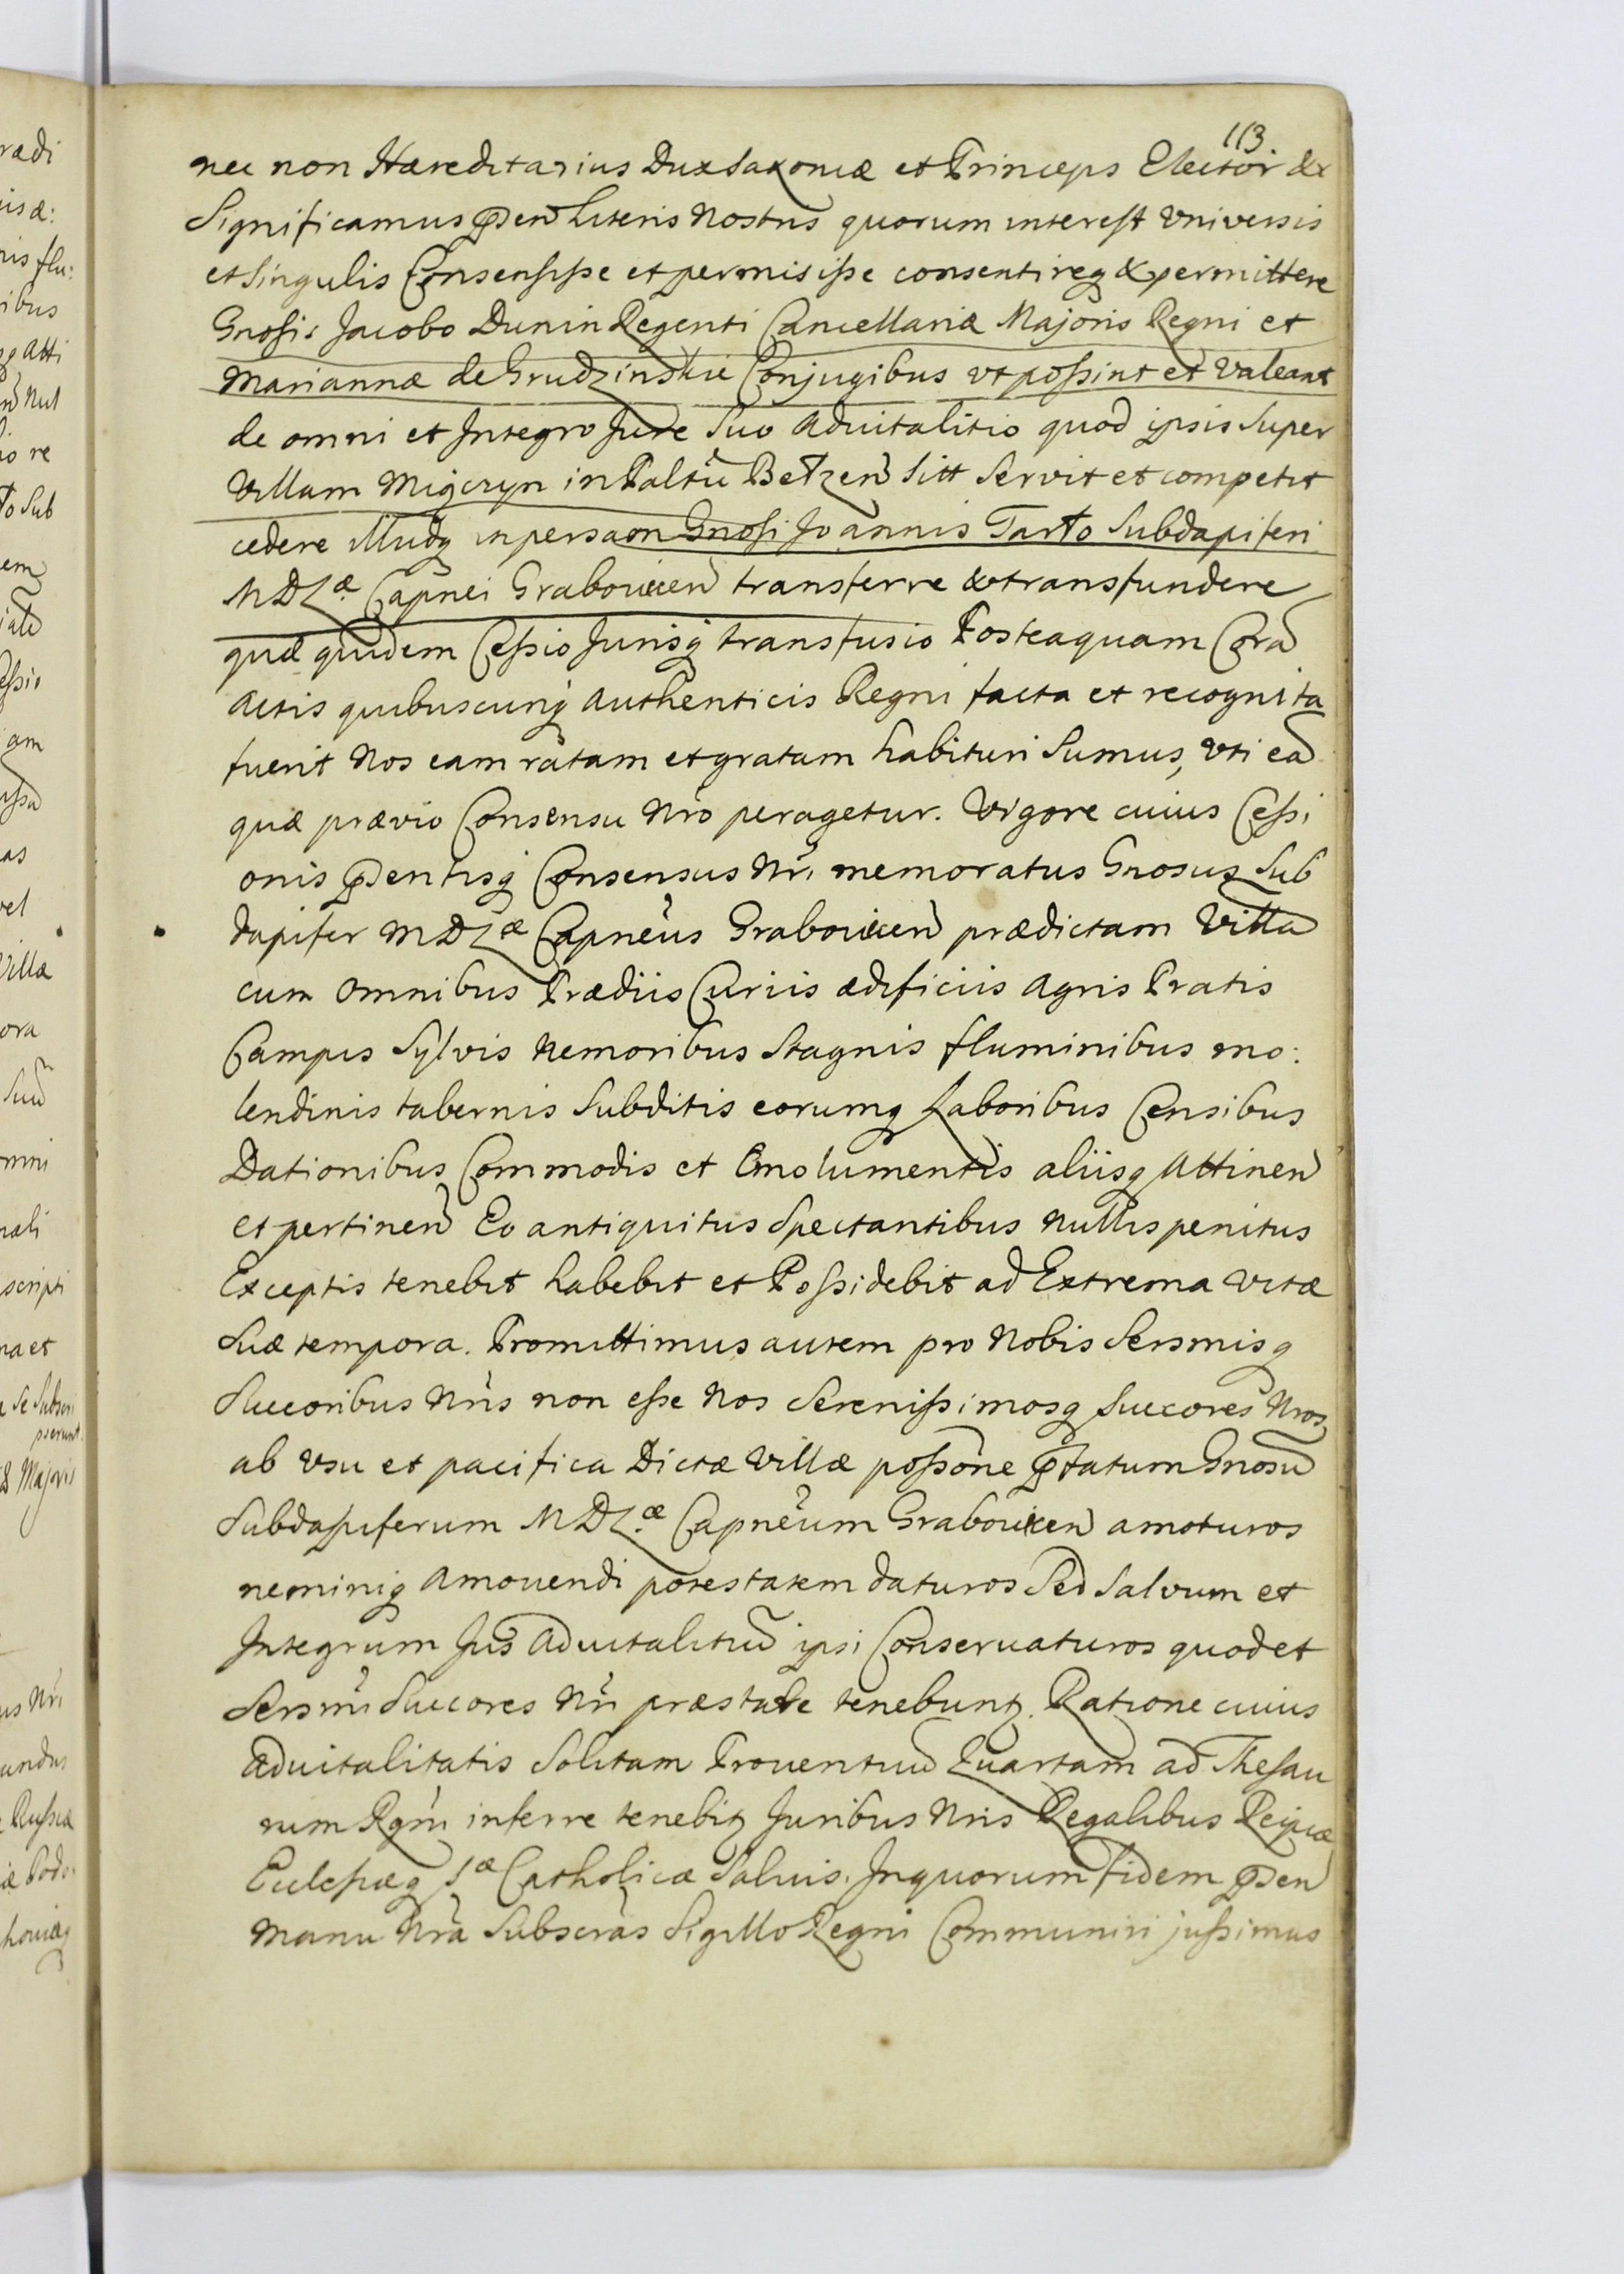 113
nec non Hæreditarius Dux Saxoniæ et Princeps Elector &c
Significamus pñten Literis Nostris quorum interest Universis
et Singulis Consensisse et permisisse consentireq & permittere
Gnosis Jacobo Dunin Regenti Cancellariæ Majoris Regni et
Mariannæ de Grudzinskie Conjugibus ut possint et valeant
de omni et Integro Jure Suo Advitalitio quod ipsis Super
Villam Migczyn in Paltũ Betzeñ Sitt Servit et competit
cedere illudq in personam Gnosi Joannis Tarło Subdapiferi
M D Læ Capnei Grabouiecen transferre & transfundere
quæ quidem Cessio Jurisq transfusio Posteaquam Corã
Actis quibuscunq Authenticis Regni facta et recognita
fuerit Nos eam ratam et gratam habituri Sumus, Uti eã
quæ prævio Consensu Nro peragetur. Vigore cuius Cessi
onis pñtentisq Consensus Nri memoratus Gnosus Sub
dapifer M D Læ Capneus Grabouiecen prædictam Villã
cum Omnibus Prædiis Curiis ædificiis Agris Pratis
Campis Sylvis Nemoribus Stagnis fluminibus mo:
lendinis tabernis Subditis eorumq Laboribus Censibus
Dationibus Commodis et Emolumentis aliisq Attineñ
et pertineñ Eo antiquitus Spectantibus Nullis penitus
Exceptis tenebit habebit et Possidebit ad Extrema vitæ
Suæ tempora. Promittimus autem pro Nobis Sersmisq
Succoribus Nris non esse Nos Serenissimosq Succores Nros
ab Usu et pacifica Dictæ Villæ possone pfatum Gnosũ
Subdapiferum M D L.æ Capneum Grabouiecen amoturos
neminiq Amouendi potestatem daturos Sed Salvum et
Integrum Jus Advitalitiũ ipsi Conseruaturos quod et
Sersmi Succores Nri præstare tenebunt. Ratione cuius
Advitalitatis Solitam Prouentuũ Quartam ad Thesau
rum Rgni inferre tenebit Juribus Nris Regalibus Reipcæ
Eulesiæq S.æ Catholicæ Saluis. In quorum fidem pñten
Manu Nra Subscras Sigillo Regni Communiri jussimus